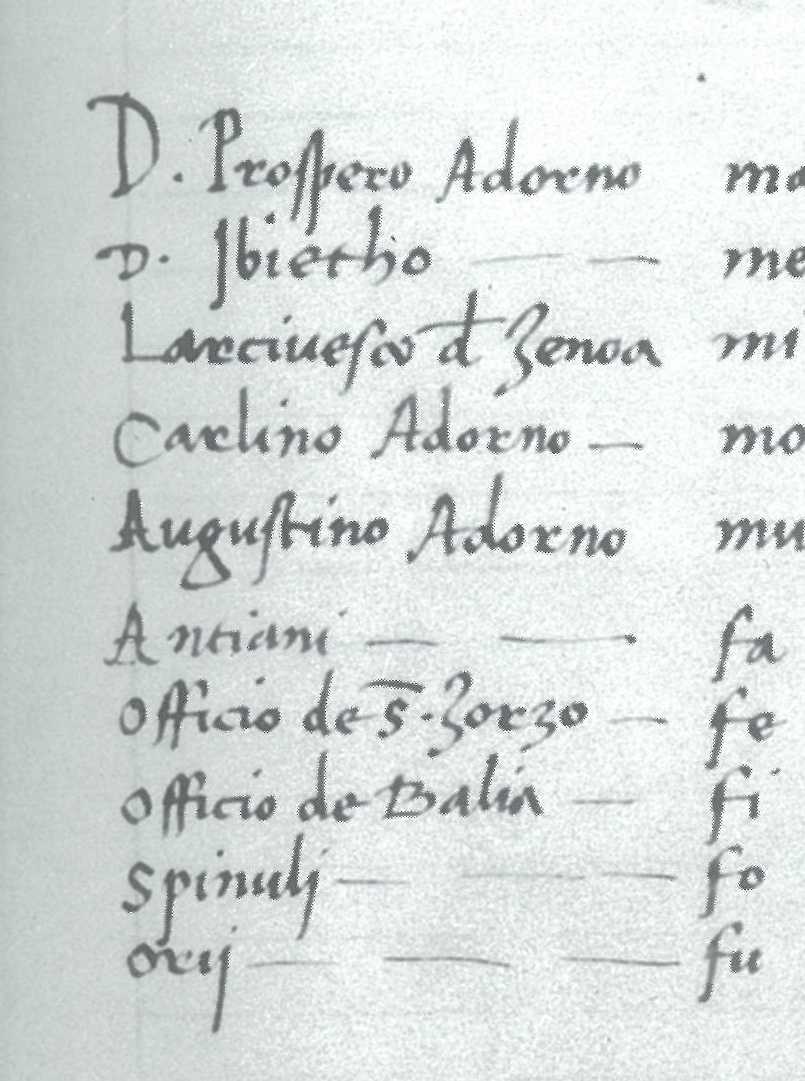 D. Prospero Adorno ma
D. Jbietho — — me
Larciuesco d Zenoa mi
Carlino Adorno — mo
Augustino Adorno mu
Antiani — — fa
officio de S. Zorzo — fe
officio de Balia — fi
Spinulj — — — fo
orij — — — fu